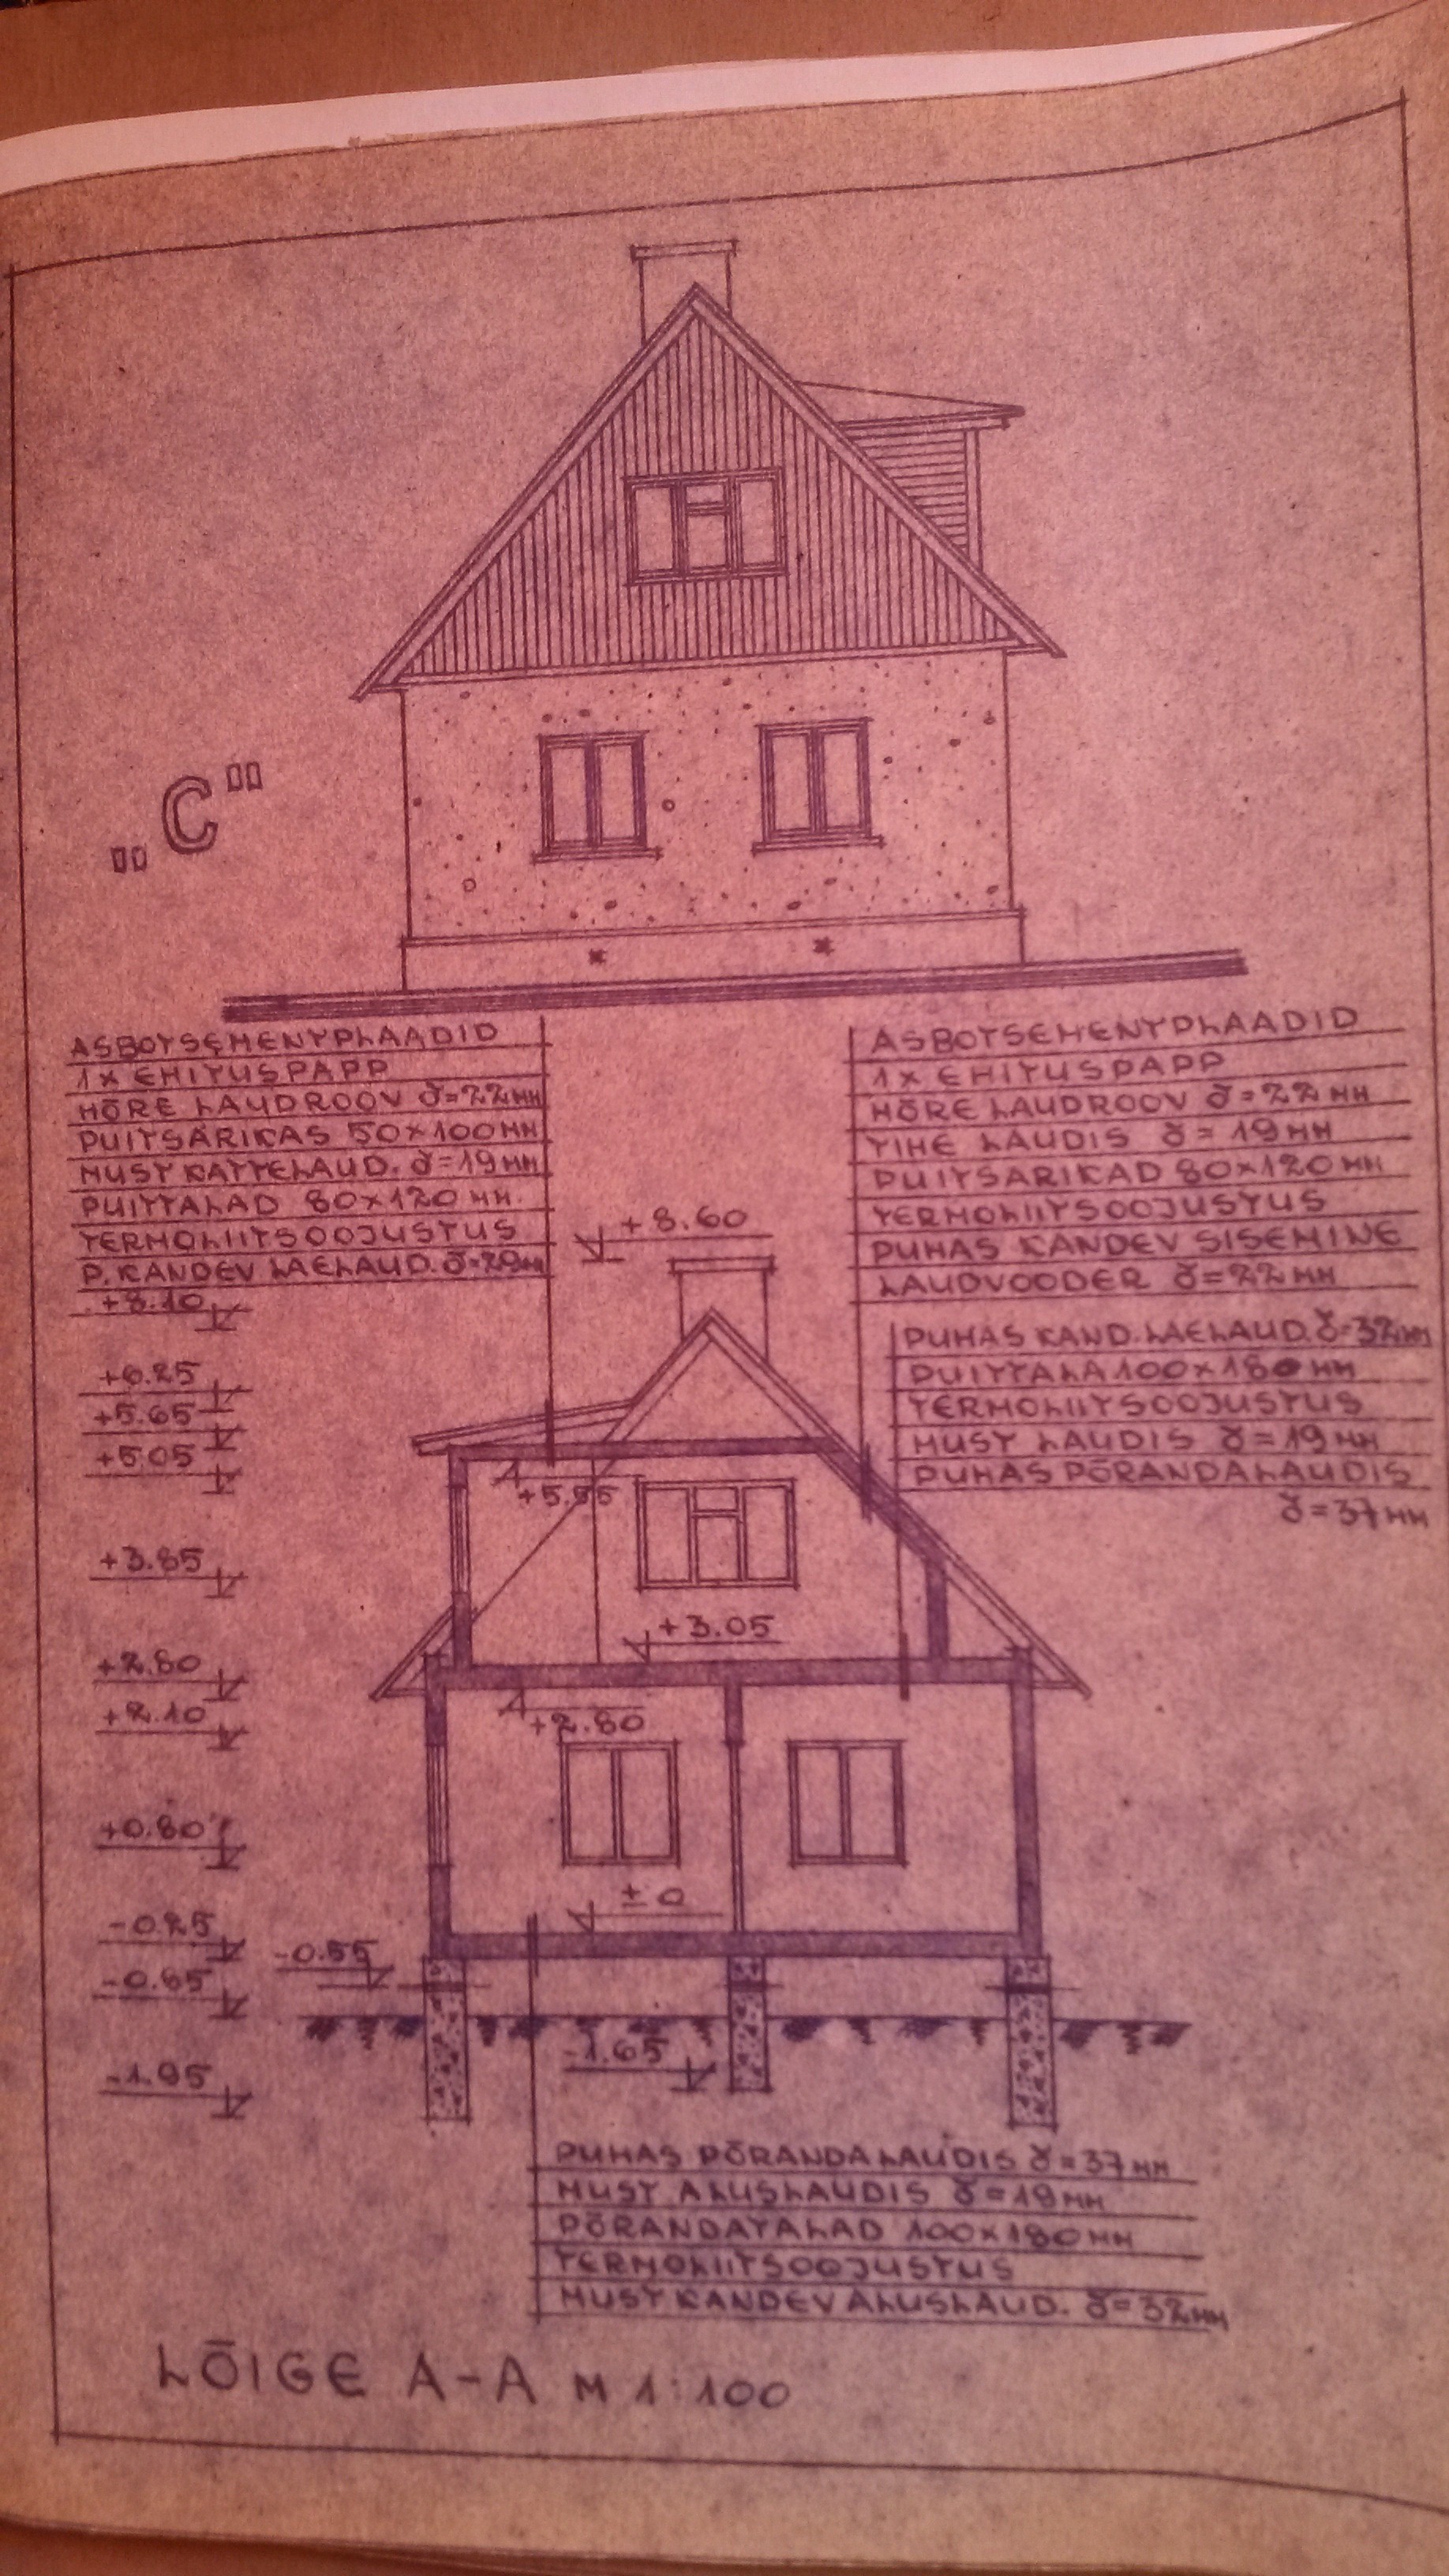 „C"
ASBOTSEMENTPLAADID
1× EHITUSPAPP
HÕRE LAUDROOV δ=22мм
PUITSARIKAS 50×100мм
MUST KATTELAUD. δ=19мм
PUITTALAD 80×120 мм.
TERMOLIITSOOJUSTUS
P. KANDEV LAELAUD. δ=29мм
ASBOTSEMENTPLAADID
1× EHITUSPAPP
HÕRE LAUDROOV δ=22мм
TIHE LAUDIS δ= 19мм
PUITSARIKAD 80×120 мм
TERMOLIITSOOJUSTUS
PUHAS KANDEV SISEMINE
LAUDVOODER δ=22мм
PUHAS KAND. LAELAUD. δ=32мм
PUITTALA 100×180 мм
TERMOLIITSOOJUSTUS
MUST LAUDIS δ=19 мм
PUHAS PÕRANDALAUDIS
δ=37мм
+8.60
+8.10
+6.25
+5.65
+5.05
+3.85
+2.80
+2.10
+0.80
-0.25
-0.85
-1.95
+3.05
+2.80
±0
-0.55
-1.65
PUHAS PÕRANDALAUDIS δ=37мм
MUST ALUSLAUDIS δ=19мм
PÕRANDATALAD 100×180мм
TERMOLIITSOOJUSTUS
MUST KANDEV ALUSLAUD. δ=32мм
LÕIGE A-A M 1:100